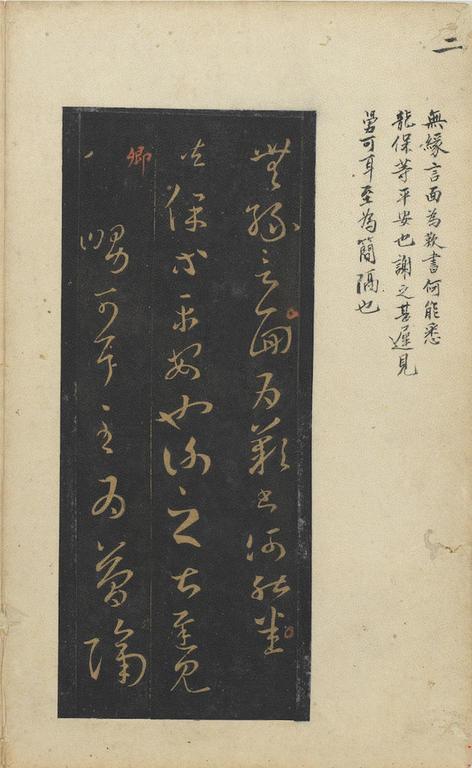 二
無緣言面為歎書何能悉
龍保等平安也謝之甚遲見
舅可耳至為簡隔也
無緣言面為歎書何能悉
龍保等平安也謝之甚遲見
卿
卿舅可耳至為簡隔